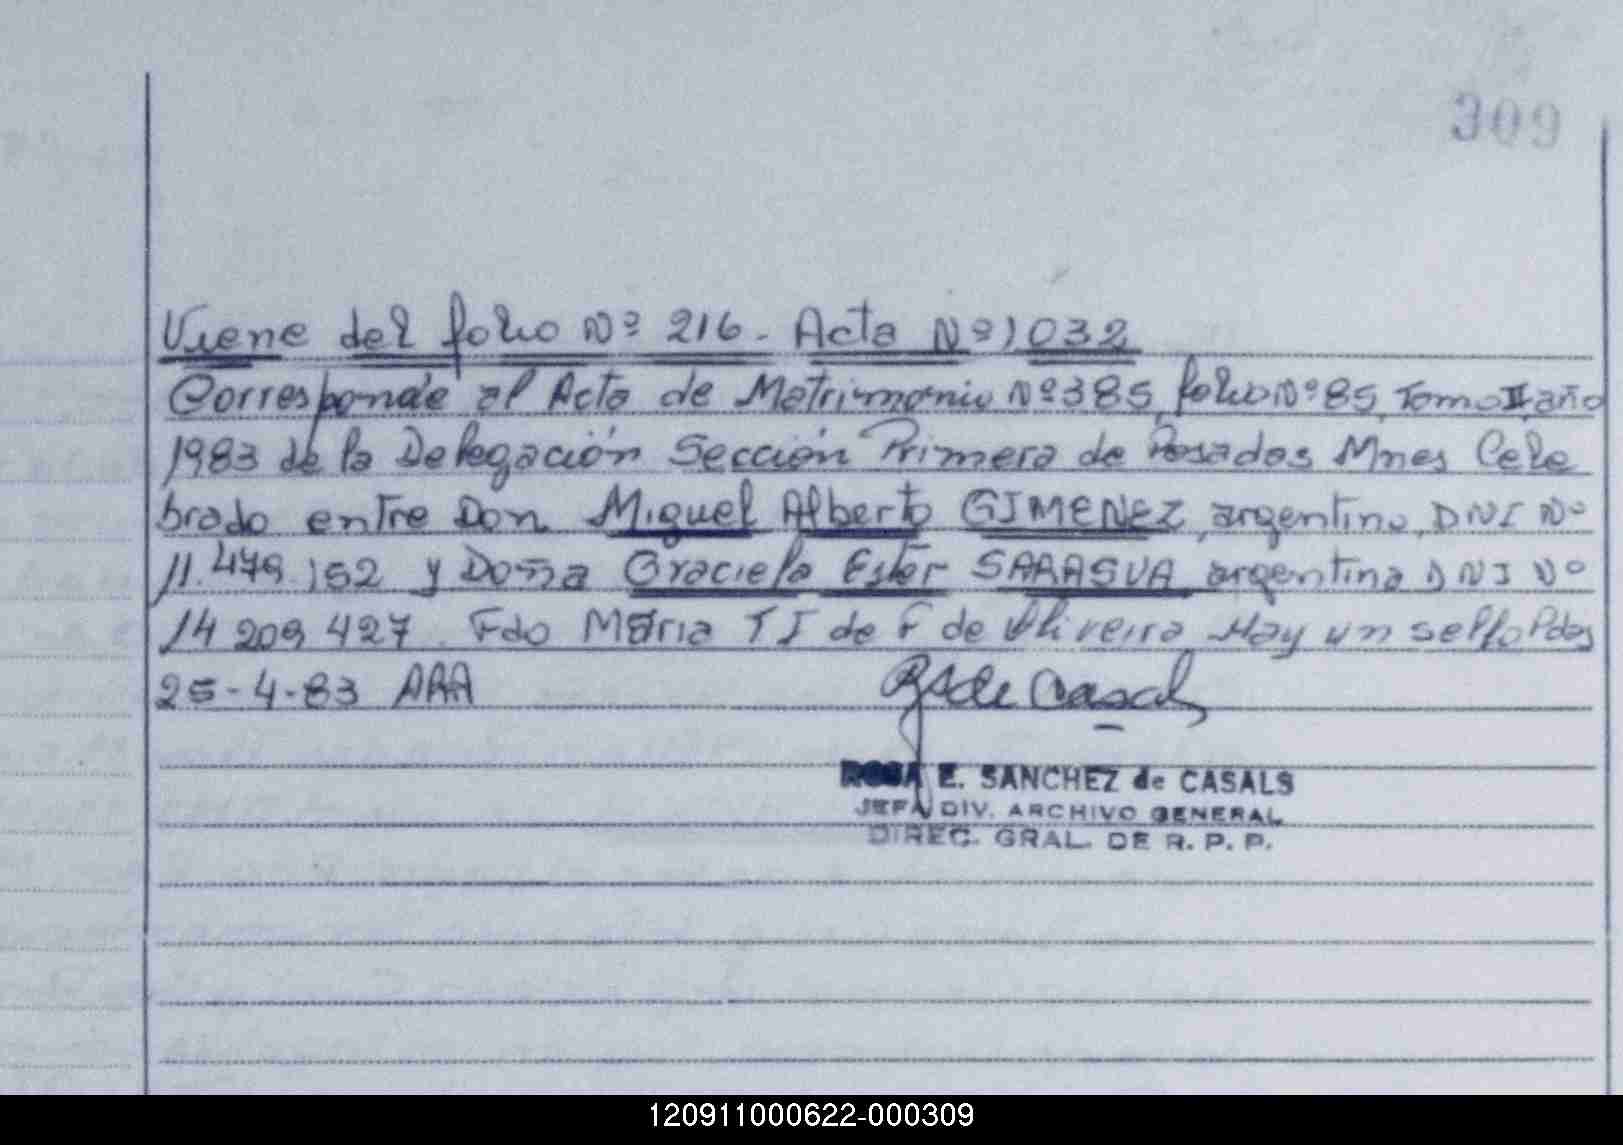 309
Viene del folio Nº 216. Acta Nº 1032
Corresponde al Acta de Matrimonio Nº 385, folio Nº 85, Tomo II año
1983 de la Delegación Sección Primera de Posadas Mnes Cele
brado entre Don Miguel Alberto GIMENEZ, argentino, DNI Nº
11.479.152 y Doña Graciela Ester SARASUA argentina DNI Nº
14 209 427. Fdo María T I de F de Oliveira Hay un sello Pdas
25-4-83 AAA
RS de Casals
ROSA E. SANCHEZ de CASALS
JEFA DIV. ARCHIVO GENERAL
DIREC. GRAL. DE R. P. P.
120911000622-000309